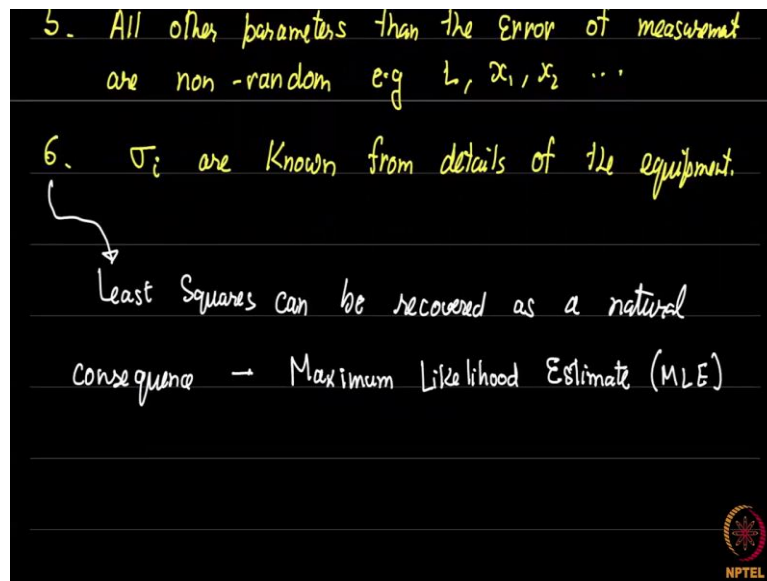 5. All other parameters than the Error of measurement
are non-random e.g L, x₁, x₂ ...
6. σᵢ are Known from details of the equipment.
Least Squares can be recovered as a natural
consequence – Maximum Likelihood Estimate (MLE)
NPTEL